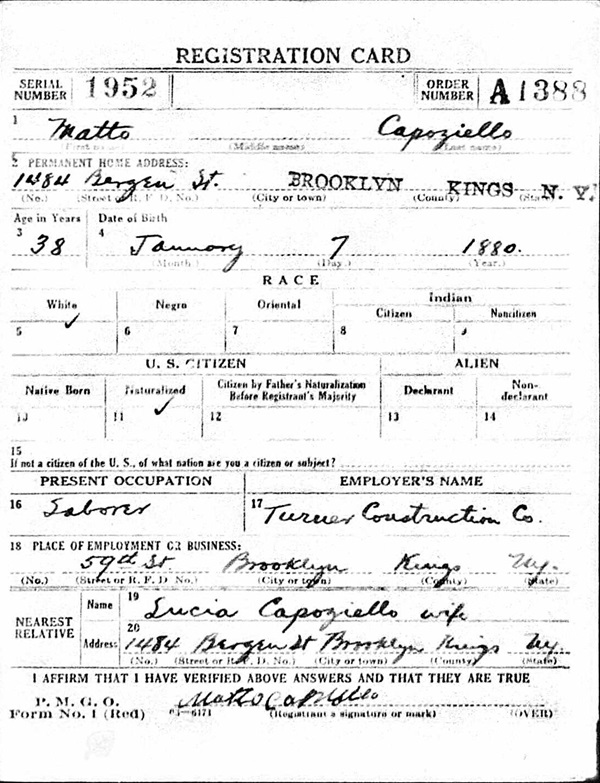 REGISTRATION CARD
SERIAL NUMBER 1952 ORDER NUMBER A1388
1 Matto Capoziello
(First name) (Middle name) (Last name)
2 PERMANENT HOME ADDRESS:
1484 Bergen St. BROOKLYN KINGS N. Y.
(No.) (Street or R. F. D. No.) (City or town) (County) (State)
Age in Years Date of Birth
3 38 4 January 7 1880.
(Month.) (Day.) (Year.)
RACE
White Negro Oriental Indian
Citizen Noncitizen
5 ✓ 6 7 8 9
U. S. CITIZEN ALIEN
Native Born Naturalized Citizen by Father's Naturalization Before Registrant's Majority Declarant Non-declarant
10 11 ✓ 12 13 14
15
If not a citizen of the U. S., of what nation are you a citizen or subject?
PRESENT OCCUPATION EMPLOYER'S NAME
16 Laborer 17 Turner Construction Co.
18 PLACE OF EMPLOYMENT OR BUSINESS:
59th St Brooklyn Kings Ny.
(No.) (Street or R. F. D. No.) (City or town) (County) (State)
NEAREST RELATIVE Name 19 Lucia Capoziello wife
Address 20 1484 Bergen St Brooklyn Kings Ny.
(No.) (Street or R. F. D. No.) (City or town) (County) (State)
I AFFIRM THAT I HAVE VERIFIED ABOVE ANSWERS AND THAT THEY ARE TRUE
P. M. G. O. Matto
Form No. 1 (Red) 03—6171 (Registrant's signature or mark) (OVER)